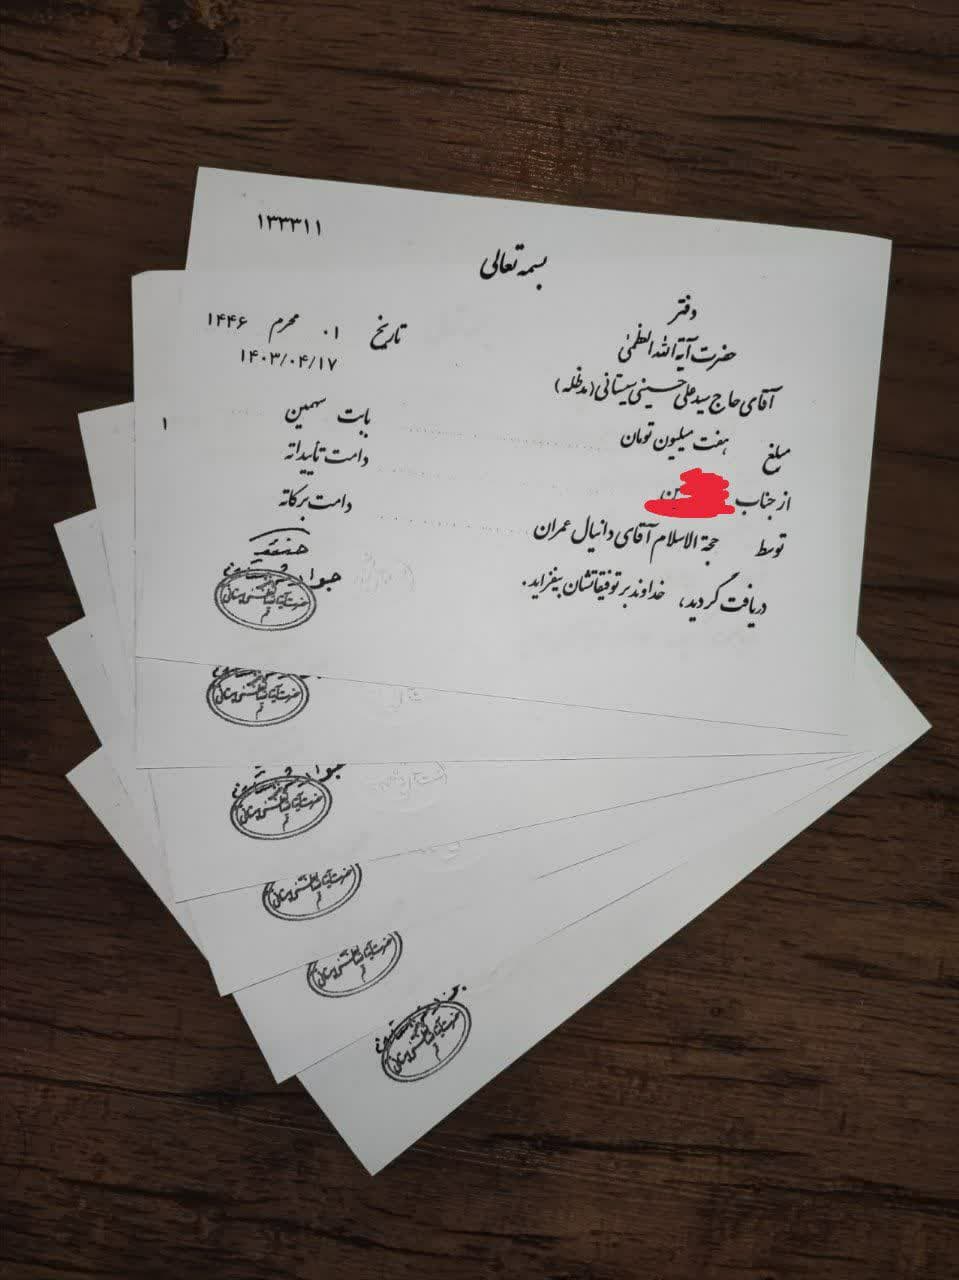 ۱۳۳۳۱۱
بسمه تعالی
دفتر
حضرت آیة الله العظمیٰ
آقای حاج سید علی حسینی سیستانی (مدظله)
تاریخ ۰۱ محرم ۱۴۴۶
۱۴۰۳/۰۴/۱۷
مبلغ هفت میلیون تومان بابت سهمین ۱
از جناب دامت تأییداته
توسط حجة الاسلام آقای دانیال عمران دامت برکاته
دریافت گردید، خداوند بر توفیقاتشان بیفزاید.